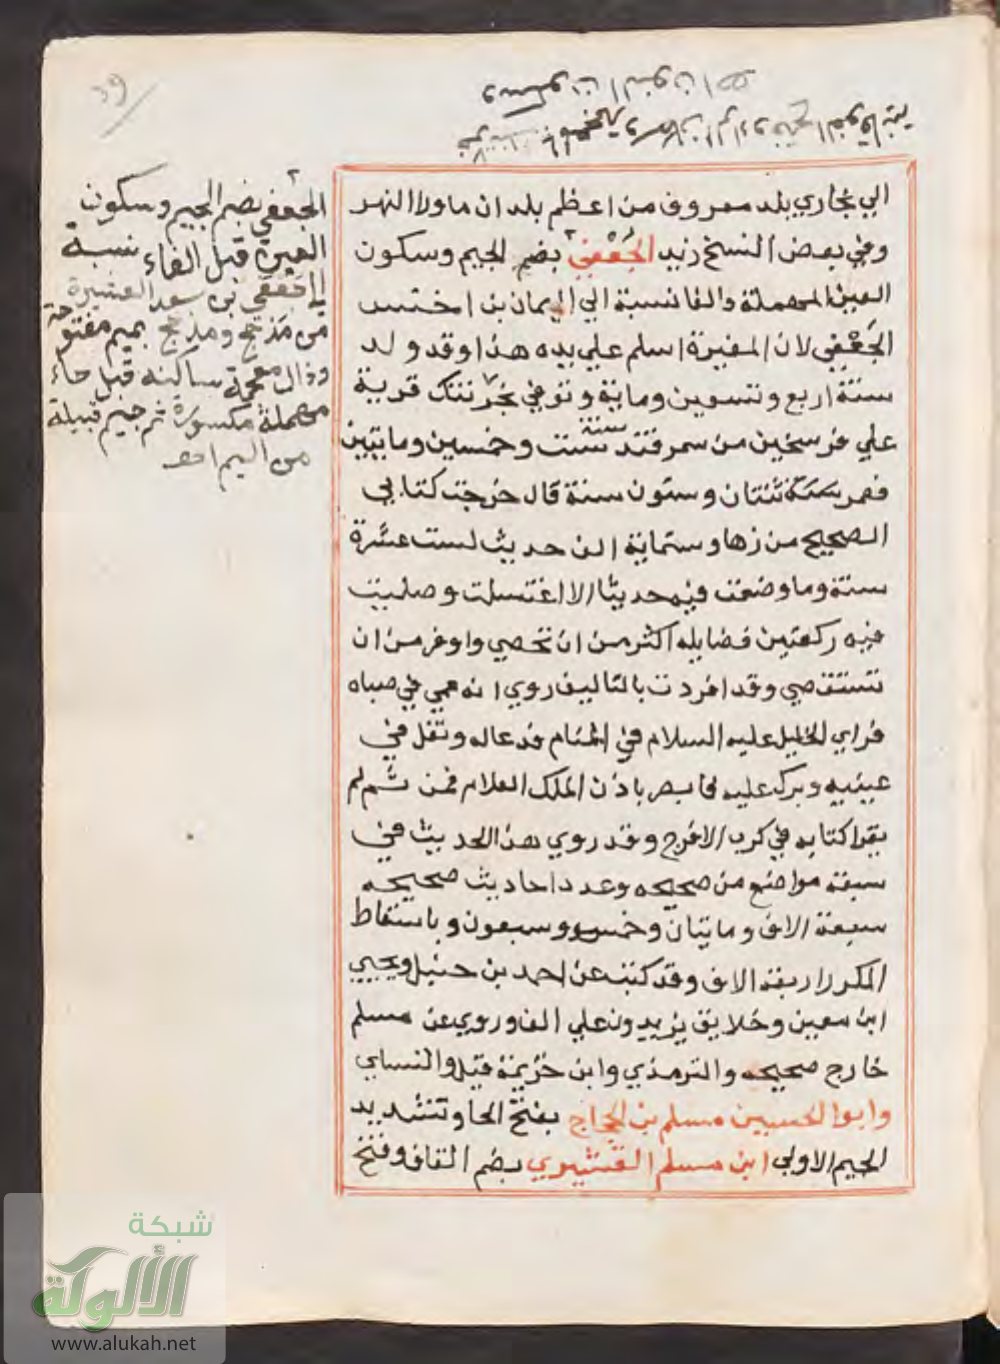 39
الي بخاري بلد معروف من اعظم بلدان ماورا النهر
وفي بعض النسخ زيد الجُعْفِي بضم الجيم وسكون
العين المهملة والفا نسبة الي اليمان بن اخنس
الجَعْفِي لان المغيرة اسلم علي يده هذا وقد ولد
سنة اربع وتسعين وماية وتوفي بخرتنك قرية
علي فرسخين من سمرقند سنة ست وخمسين ومايتين
فعمره ثنتان وستون سنة قال خرجت كتابي
الصحيح من زها وستماية الف حديث لست عشرة
سنة وما وضعت فيه حديثا الا اغتسلت وصليت
فيه ركعتين فضايله اكثر من ان تحصي واوفر من ان
تستقصي وقد افردت بالتاليف روي انه عمي في صباه
فراي الخليل عليه السلام في المنام فدعا له وتفل في
عينيه وبرك عليه فابصر باذن الملك العلام فمن ثم لم
يقرا كتابه في كرب الا فرج وقد روي هذا الحديث في
سبعة مواضع من صحيحه وعدد احاديث صحيحه
سبعة الاف ومايتان وخمس وسبعون وباسقاط
المكرر اربعة الاف وقد كتب عن احمد بن حنبل ويحيي
ابن معين وخلايق يزيدون علي الف وروي عن مسلم
خارج صحيحه والترمذي وابن خزيمة قيل والنساي
وابوا الحسين مسلم بن الحجاج بفتح الحا وتشديد
الجيم الاولي ابن مسلم القشيري بضم القاف وفتح
الجعفي بضم الجيم وسكون
العين قبل الفاء نسبة
بن سعد العشيرة
من مَذحج ومذحج بميم مفتوحة
وذال معجمة ساكنه قبل حاء
مهملة مكسورة ثم جيم قبيلة
من اليمن اهـ
شبكة
الألوكة
www.alukah.net